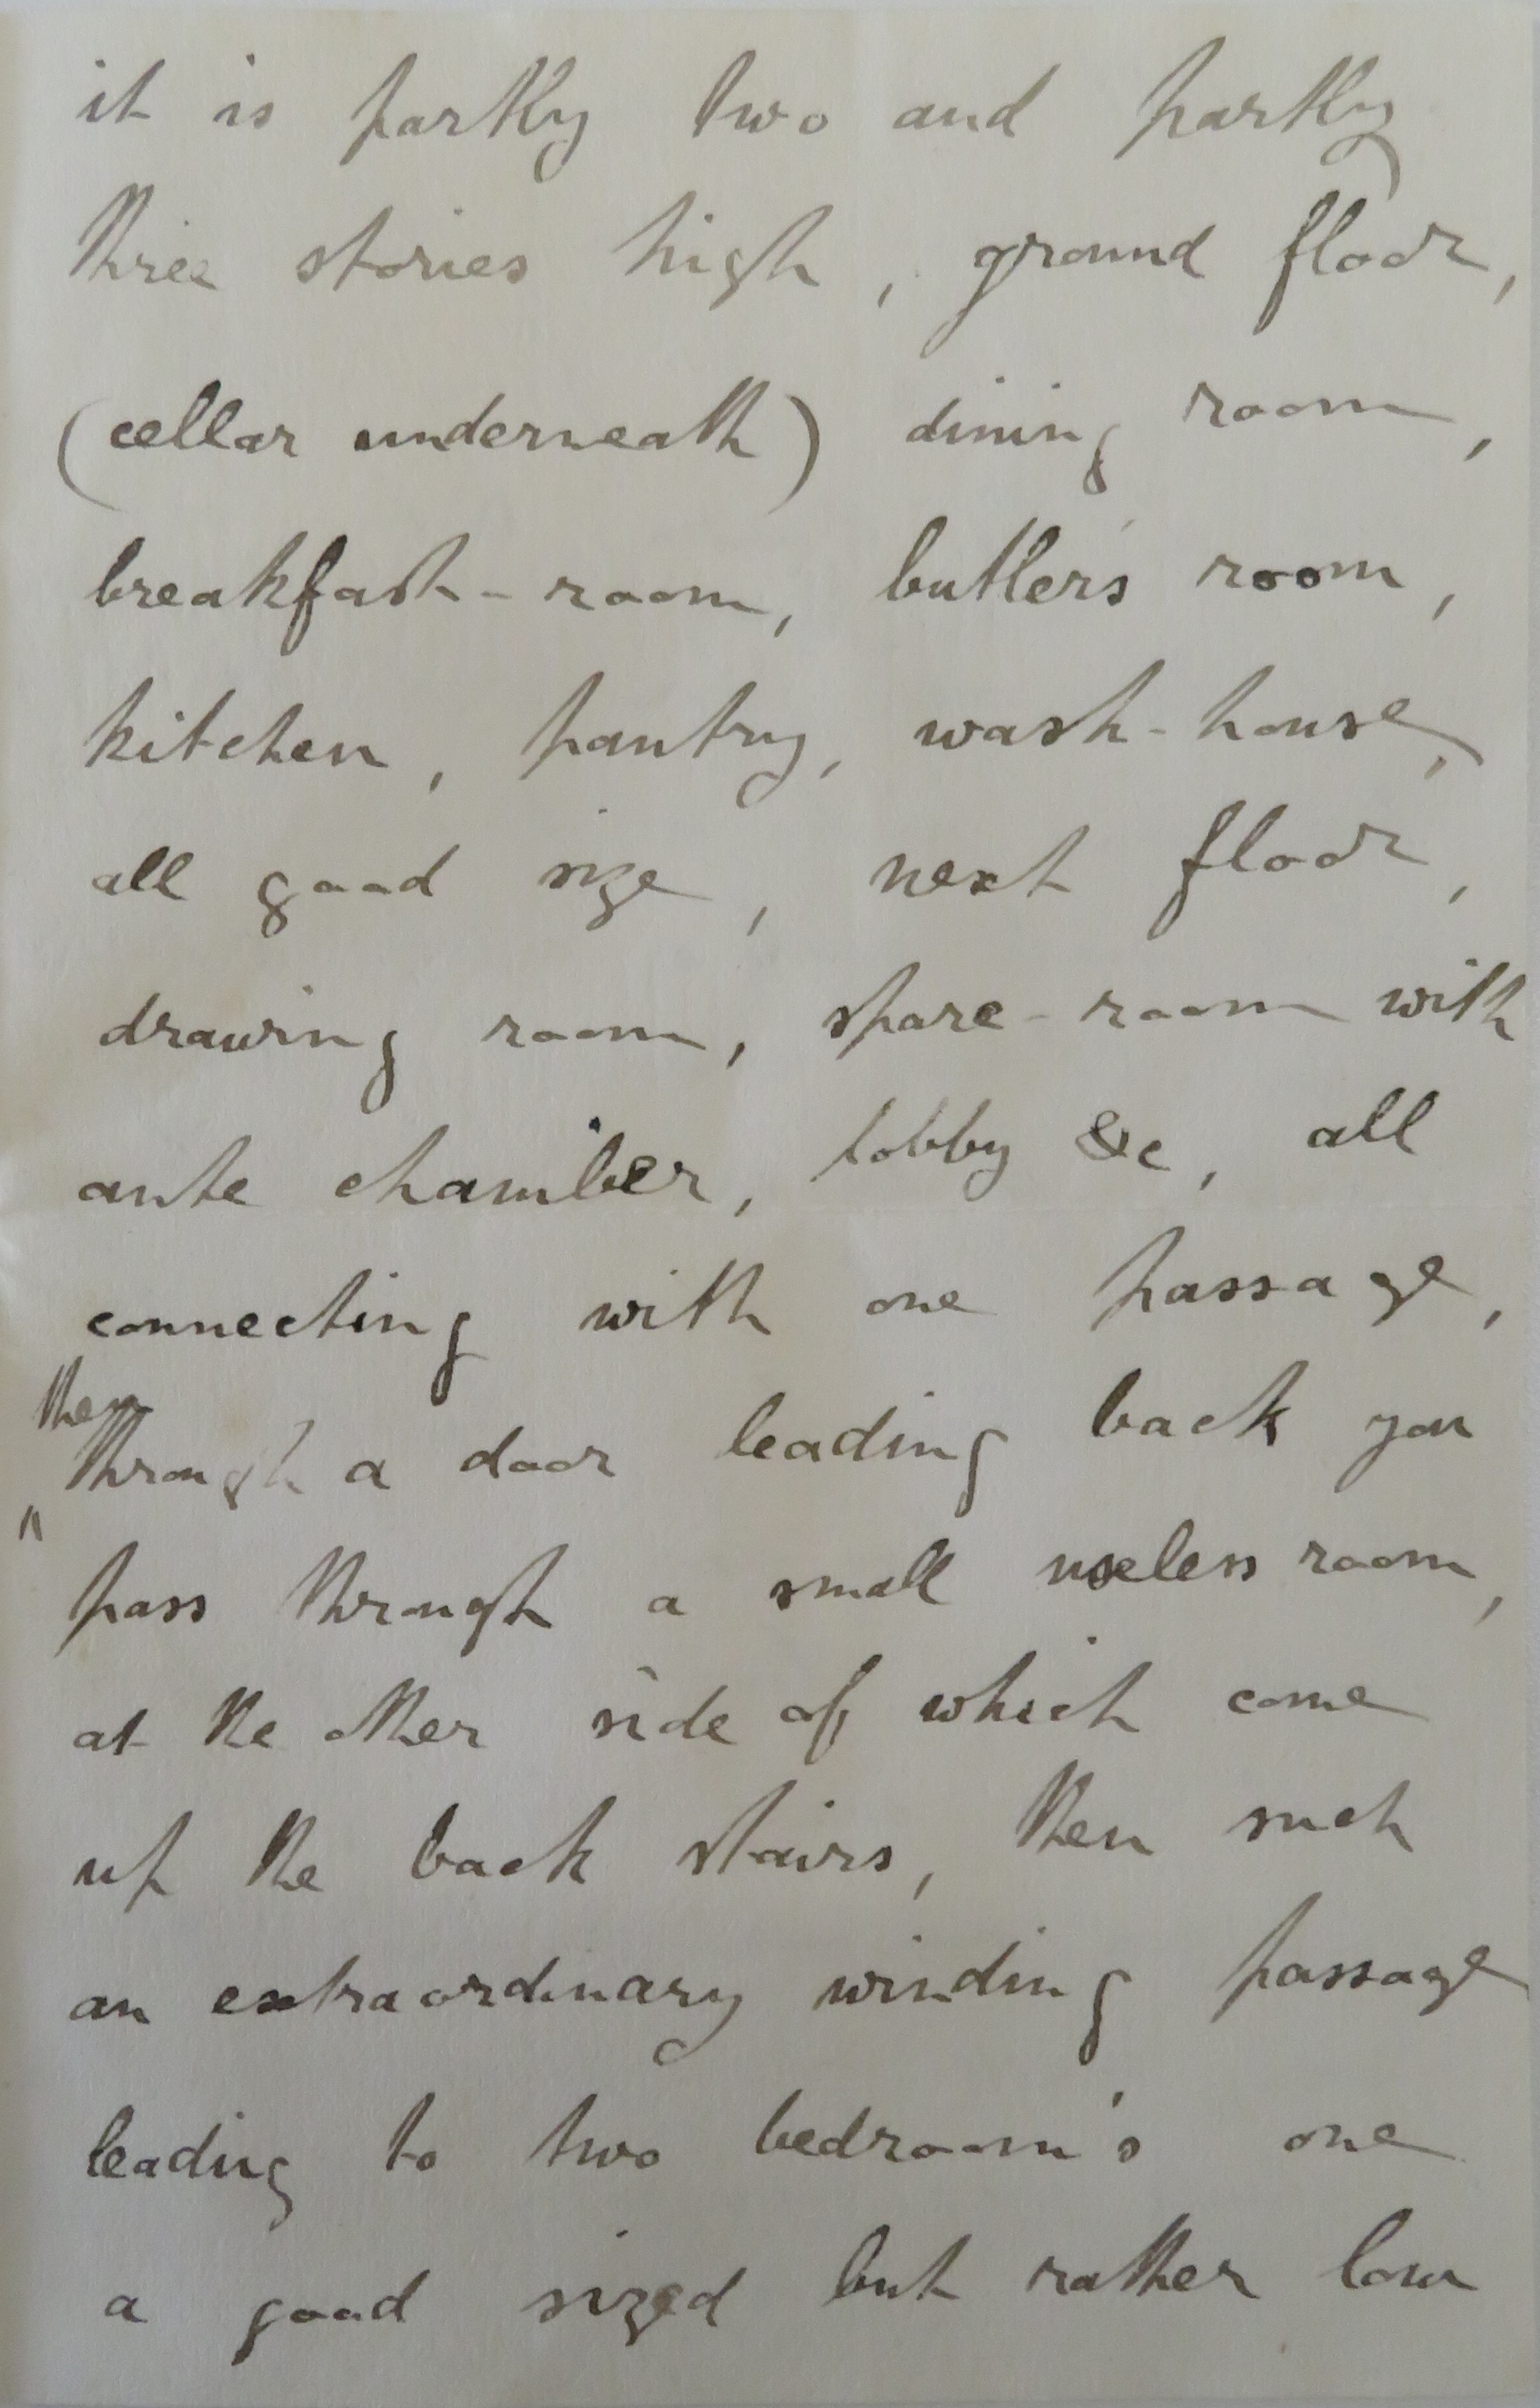 it is partly two and partly
three stories high, ground floor,
(cellar underneath) dining room,
breakfast-room, butler's room,
kitchen, pantry, wash-house,
all good size, next floor,
drawing room, spare-room with
ante chamber, lobby &c, all
connecting with one passage,
then
through a door leading back you
pass through a small useless room,
at the other side of which come
up the back stairs, then such
an extraordinary winding passage
leading to two bedroom's one
a good sized but rather low